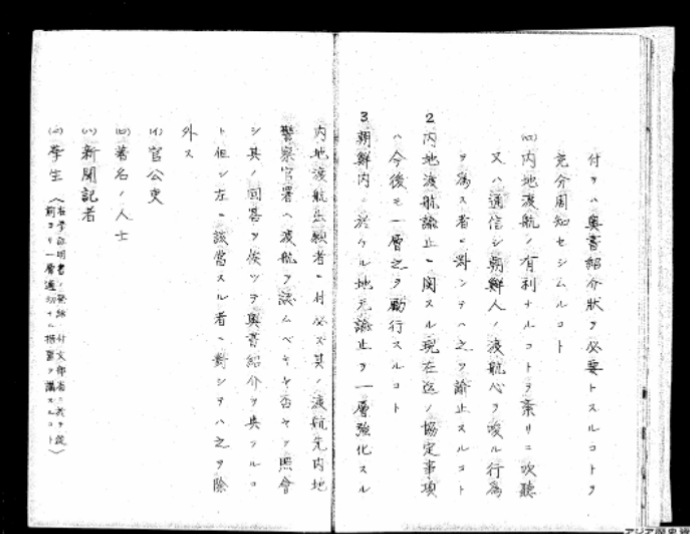 付ヲハ奥書紹介状ヲ必要トスルコトヲ
充分周知セシムルコト
(四)内地渡航ノ有利ナルコトヲ妄リニ吹聴
又ハ通信シ朝鮮人ノ渡航心ヲ唆ル行為
ヲ為ス者ニ対シテハ之ヲ諭止スルコト
2 内地渡航諭止ニ関スル現在迄ノ協定事項
ハ今後モ一層之ヲ励行スルコト
3 朝鮮内ニ於ケル地元諭止ヲ一層強化スル
内地渡航出願者ニ対シ必ズ其ノ渡航先内地
警察官署ヘ渡航ヲ認ムベキヤ否ヤヲ照會
シ其ノ回答ヲ俟ツテ奥書紹介ヲ與フルコ
ト但シ左ニ該當スル者ニ對シテハ之ヲ除
外ス
(イ)官公吏
(ロ)著名ノ人士
(ハ)新聞記者
(ニ)学生
一層適切ナル措置ヲ講スルコト)